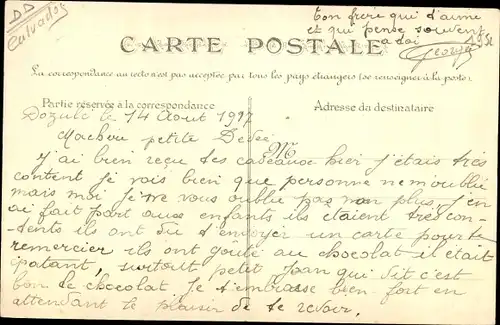 DD
Calvados
Ton frère qui t'aime
et qui pense souvent
a toi
Georges
CARTE POSTALE
La correspondance au recto n'est pas acceptée par tous les pays étrangers (se renseigner à la poste)
Partie réservée à la correspondance
Adresse du destinataire
Dozulé le 14 Août 1917
Ma chère petite Dédée
M
J'ai bien reçu tes cadeaux hier j'étais très
content je vois bien que personne ne m'oublie
mais moi je ne vous oublie pas non plus, j'en
ai fait part aux enfants ils étaient très con-
tents ils ont dû t'envoyer un carte pour te
remercier ils ont goûté au chocolat il était
épatant, surtout petit Jean qui dit c'est
bon le chocolat Je t'embrasse bien fort en
attendant le plaisir de te revoir.